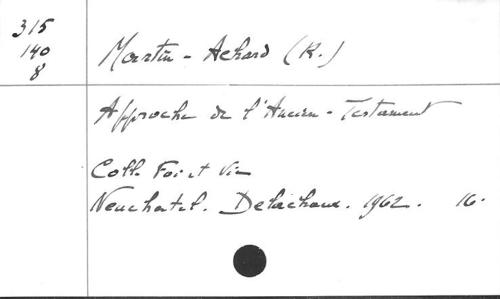 315
140
8
Martin - Achard (R.)
Approche de l'Ancien - Testament
Coll. Foi et Vie
Neuchatel. Delachaux. 1962. 16.